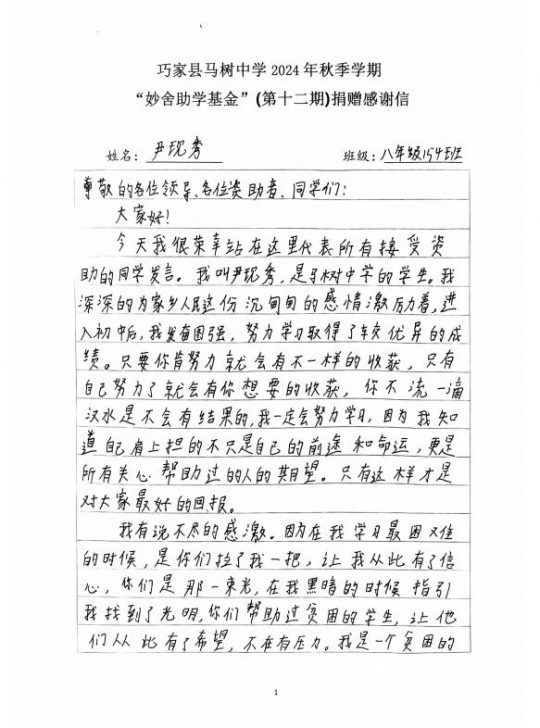 巧家县马树中学 2024 年秋季学期
“妙舍助学基金”(第十二期)捐赠感谢信
姓名: 尹现秀 班级: 八年级154班
尊敬的各位领导、各位资助者、同学们:
大家好!
今天我很荣幸站在这里代表所有接受资
助的同学发言。我叫尹现秀,是马树中学的学生。我
深深的为家乡人民这份沉甸甸的感情激励着,进
入初中后,我发奋图强,努力学习取得了较优异的成
绩。只要你肯努力就会有不一样的收获,只有
自己努力了就会有你想要的收获,你不流一滴
汉水是不会有结果的,我一定会努力学习,因为我知
道自己肩上担的不只是自己的前途和命运,更是
所有关心帮助过的人的期望。只有这样才是
对大家最好的回报。
我有说不尽的感激。因为在我学习最困难
的时候,是你们拉了我一把,让我从此有了信
心,你们是那一束光,在我黑暗的时候指引
我找到了光明,你们帮助过贫困的学生,让他
们从此有了希望,不在有压力。我是一个贫困的
1